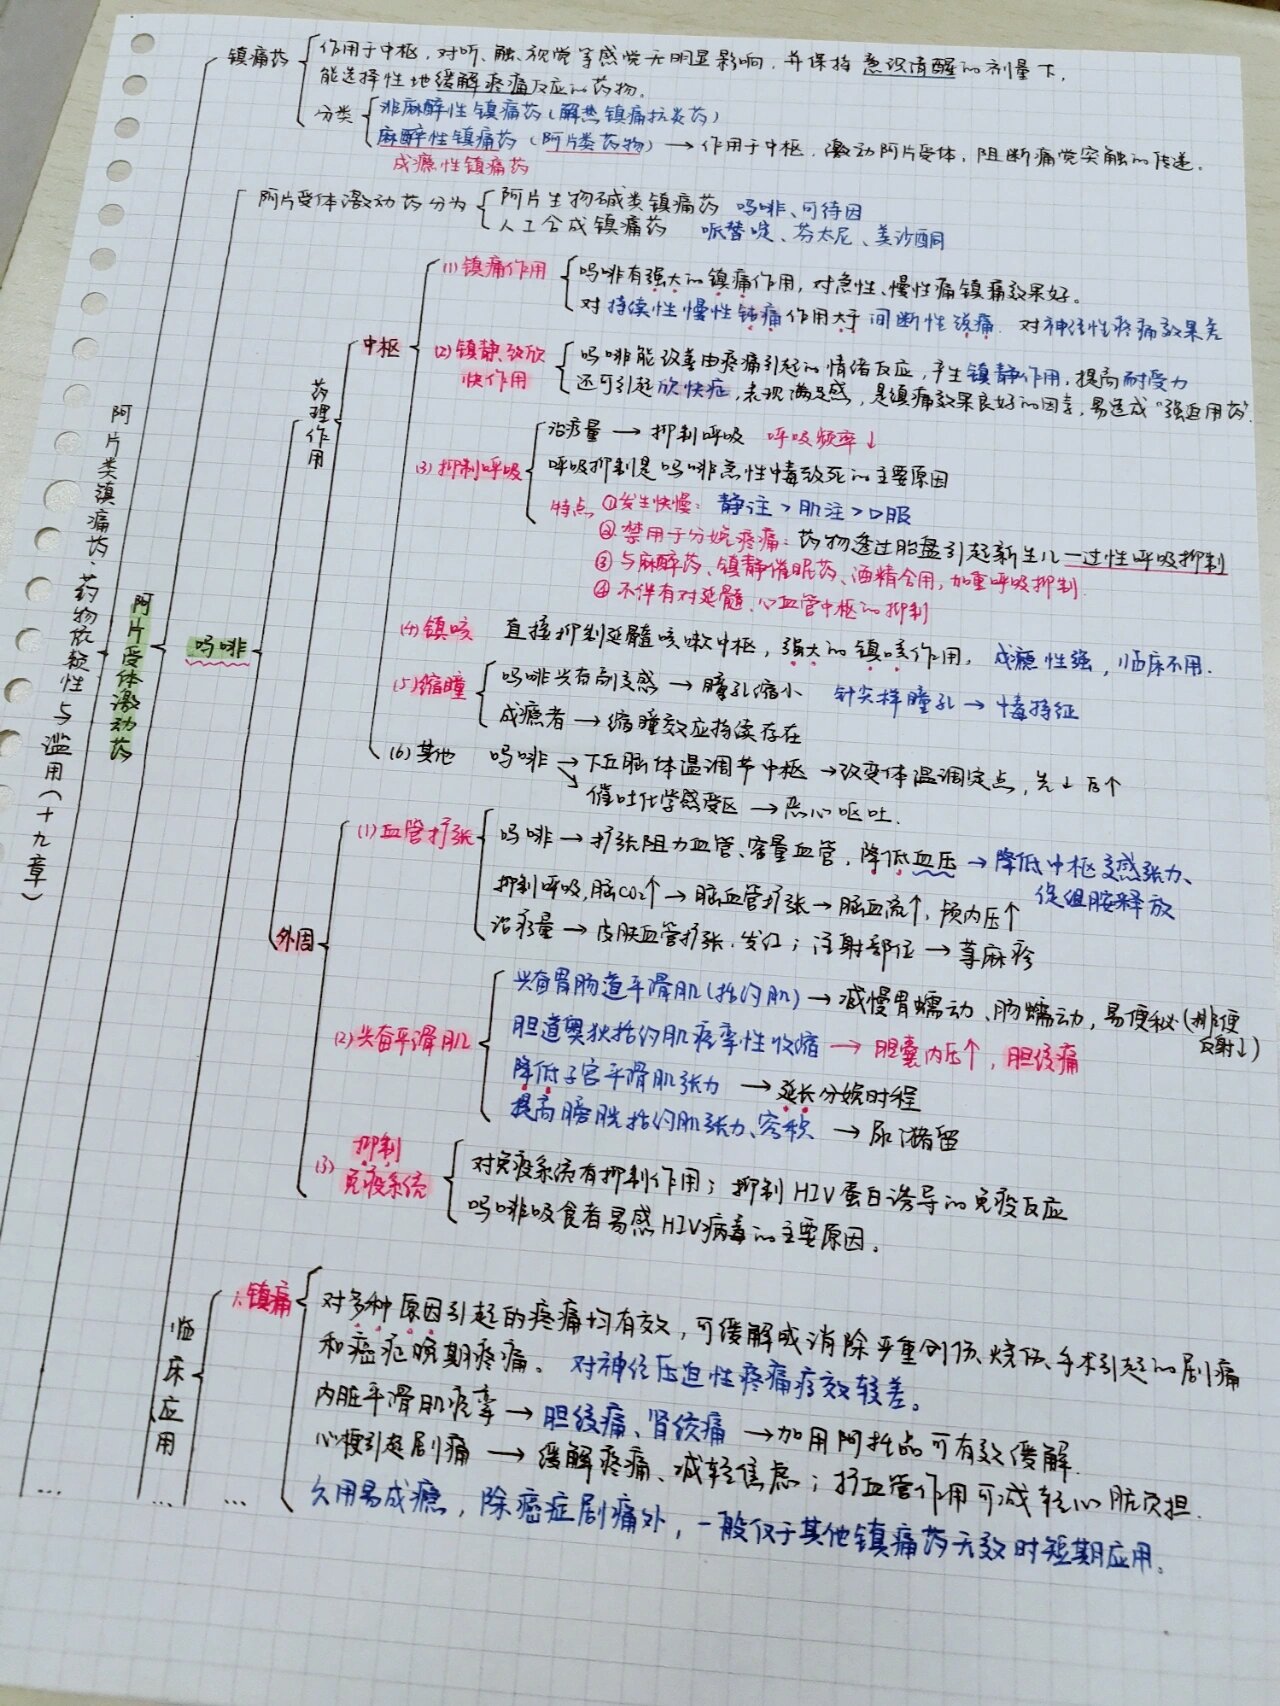 阿片类镇痛药、药物依赖性与滥用(十九章)
镇痛药
作用于中枢,对听、触、视觉等感觉无明显影响,并保持意识清醒的剂量下,
能选择性地缓解疼痛反应的药物。
分类
非麻醉性镇痛药(解热镇痛抗炎药)
麻醉性镇痛药(阿片类药物)→作用于中枢,激动阿片受体,阻断痛觉突触的传递。
成瘾性镇痛药
阿片受体激动药
阿片受体激动药分为
阿片生物碱类镇痛药 吗啡、可待因
人工合成镇痛药 哌替啶、芬太尼、美沙酮
吗啡
药理作用
中枢
(1)镇痛作用
吗啡有强大的镇痛作用,对急性、慢性痛镇痛效果好。
对持续性慢性钝痛作用大于间断性锐痛,对神经性疼痛效果差
(2)镇静、致欣
快作用
吗啡能改善由疼痛引起的情绪反应,产生镇静作用,提高耐受力
还可引起欣快症,表现满足感,是镇痛效果良好的因素,易造成“强迫用药”.
(3)抑制呼吸
治疗量→抑制呼吸 呼吸频率↓
呼吸抑制是吗啡急性中毒致死的主要原因
特点 ①发生快慢:静注>肌注>口服
②禁用于分娩疼痛:药物透过胎盘引起新生儿一过性呼吸抑制
③与麻醉药、镇静催眠药、酒精合用,加重呼吸抑制
④不伴有对延髓、心血管中枢的抑制
(4)镇咳 直接抑制延髓咳嗽中枢,强大的镇咳作用,成瘾性强,临床不用.
(5)缩瞳
吗啡兴奋副交感→瞳孔缩小 针尖样瞳孔→中毒特征
成瘾者→缩瞳效应持续存在
(6)其他 吗啡→下丘脑体温调节中枢→改变体温调定点,先↓后↑
↘催吐化学感受区→恶心呕吐.
外周
(1)血管扩张
吗啡→扩张阻力血管、容量血管,降低血压→降低中枢交感张力、
促组胺释放
抑制呼吸,脑CO₂↑→脑血管扩张→脑血流↑,颅内压↑
治疗量→皮肤血管扩张,发红;注射部位→荨麻疹
(2)兴奋平滑肌
兴奋胃肠道平滑肌(括约肌)→减慢胃蠕动、肠蠕动,易便秘(排便
反射↓)
胆道奥狄括约肌痉挛性收缩→胆囊内压↑,胆绞痛
降低子宫平滑肌张力→延长分娩时程
提高膀胱括约肌张力、容积→尿潴留
(3)抑制
免疫系统
对免疫系统有抑制作用;抑制HIV蛋白诱导的免疫反应
吗啡吸食者易感HIV病毒的主要原因。
临床应用
1.镇痛
对多种原因引起的疼痛均有效,可缓解或消除严重创伤、烧伤、手术引起的剧痛
和癌症晚期疼痛。对神经压迫性疼痛疗效较差。
内脏平滑肌痉挛→胆绞痛、肾绞痛→加用阿托品可有效缓解.
心梗引起剧痛→缓解疼痛、减轻焦虑;扩血管作用可减轻心脏负担.
久用易成瘾,除癌症剧痛外,一般仅于其他镇痛药无效时短期应用。
... ... ...